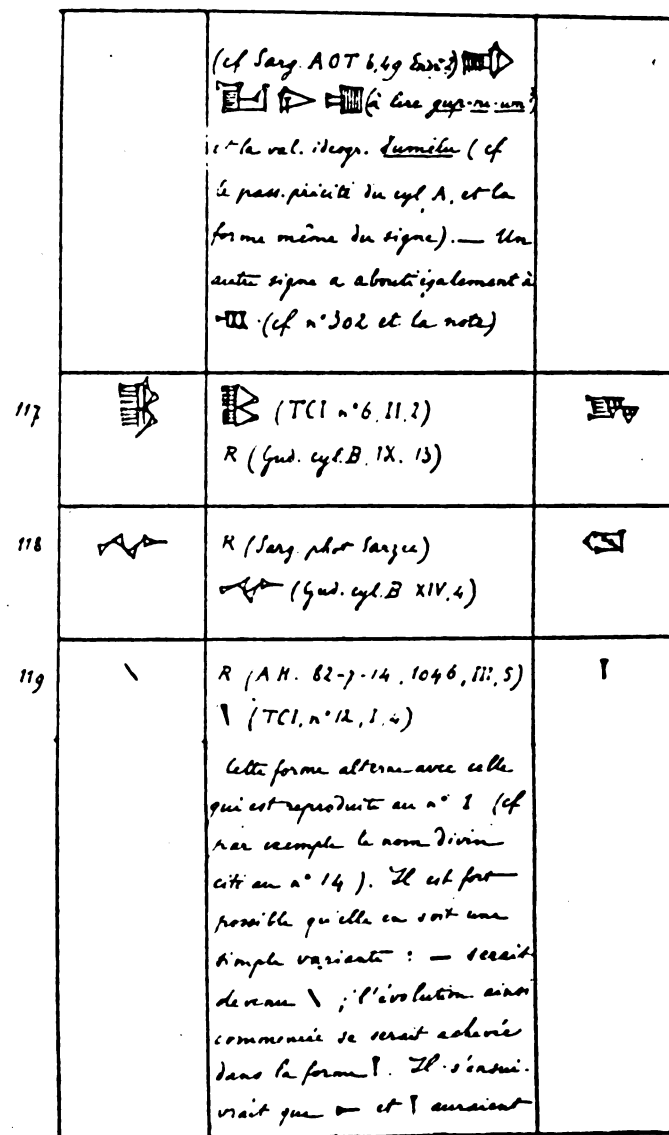 (cf Sarg. AOT b, 49
(à lire gup-ru-um?)
et la val. ideogr. šumêlu (cf
le pass. précité du cyl. A, et la
forme même du signe). — Un
autre signe a abouti également à
(cf n° 302 et la note)
117 (TCI n° 6, II, 2)
R (Gud. cyl. B, IX. 13)
118 R (Sarg. phot Sarzec)
(Gud. cyl. B XIV, 4)
119 R (AH. 82-7-14, 1046, III, 5)
(TCI, n° 12, I, 4)
Cette forme alterne avec celle
qui est reproduite au n° 1 (cf
par exemple le nom divin
cité au n° 14). Il est fort
possible qu'elle en soit une
simple variante : — serait
devenu \ ; l'évolution ainsi
commencée se serait achevée
dans la forme 𒁹. Il s'ensui-
vrait que 𒀸 et 𒁹 auraient